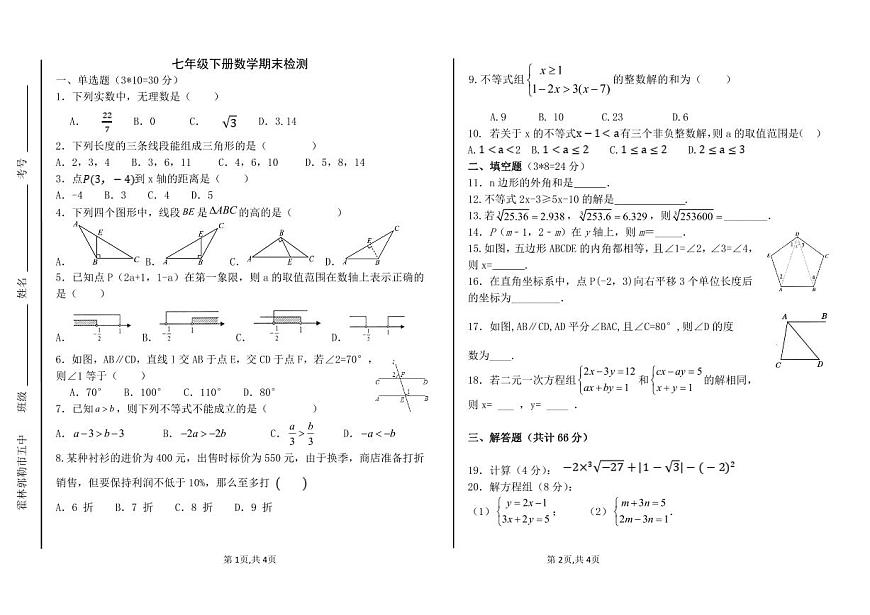 七年级下册数学期末检测
一、单选题（3*10=30 分）
1. 下列实数中，无理数是（    ）
A. 22/7    B. 0    C. √3    D. 3.14
2. 下列长度的三条线段能组成三角形的是（    ）
A. 2, 3, 4    B. 3, 6, 11    C. 4, 6, 10    D. 5, 8, 14
3. 点P(3, −4)到 x 轴的距离是（    ）
A. -4    B. 3    C. 4    D. 5
4. 下列四个图形中，线段 BE 是 ΔABC 的高的是（    ）
A.    B.    C.    D.
5. 已知点 P（2a+1, 1-a）在第一象限，则 a 的取值范围在数轴上表示正确的
是（    ）
A.    B.    C.    D.
6. 如图，AB∥CD，直线 l 交 AB 于点 E，交 CD 于点 F，若∠2=70°，
则∠1 等于（    ）
A. 70°    B. 100°    C. 110°    D. 80°
7. 已知 a > b，则下列不等式不能成立的是（    ）
A. a−3 > b−3    B. −2a > −2b    C. a/3 > b/3    D. −a < −b
8.某种衬衫的进价为 400 元，出售时标价为 550 元，由于换季，商店准备打折
销售，但要保持利润不低于 10%，那么至多打（    ）
A. 6 折    B. 7 折    C. 8 折    D. 9 折
第 1页,共 4页
霍林郭勒市五中 班级 姓名 考号
9.不等式组 { x ≥ 1 1−2x > 3(x−7) 的整数解的和为（    ）
A.9    B. 10    C.23    D.6
10. 若关于 x 的不等式x − 1 < a有三个非负整数解,则 a 的取值范围是（    ）
A. 1 < a < 2    B. 1 < a ≤ 2    C. 1 ≤ a ≤ 2    D. 2 ≤ a ≤ 3
二、填空题（3*8=24 分）
11. n 边形的外角和是______.
12.不等式 2x-3≥5x-10 的解是____________.
13.若 ∛25.36 = 2.938，∛253.6 = 6.329，则 ∛253600 = ________.
14. P（m﹣1, 2﹣m）在 y 轴上，则 m＝_____.
15.如图，五边形 ABCDE 的内角都相等，且∠1=∠2，∠3=∠4，
则 x=______.
16. 在直角坐标系中，点 P(-2, 3)向右平移 3 个单位长度后
的坐标为_________.
17. 如图, AB∥CD, AD 平分∠BAC, 且∠C=80° ,则∠D 的度
数为____.
18. 若二元一次方程组 { 2x−3y=12 ax+by=1 和 { cx−ay=5 x+y=1 的解相同，
则 x= ___ ，y= ____ .
三、解答题（共计 66 分）
19. 计算（4 分）: −2×³√−27 + |1 − √3| − (−2)²
20. 解方程组（8 分）:
（1） { y=2x−1 3x+2y=5 ；    （2） { m+3n=5 2m−3n=1 .
第 2页,共 4页